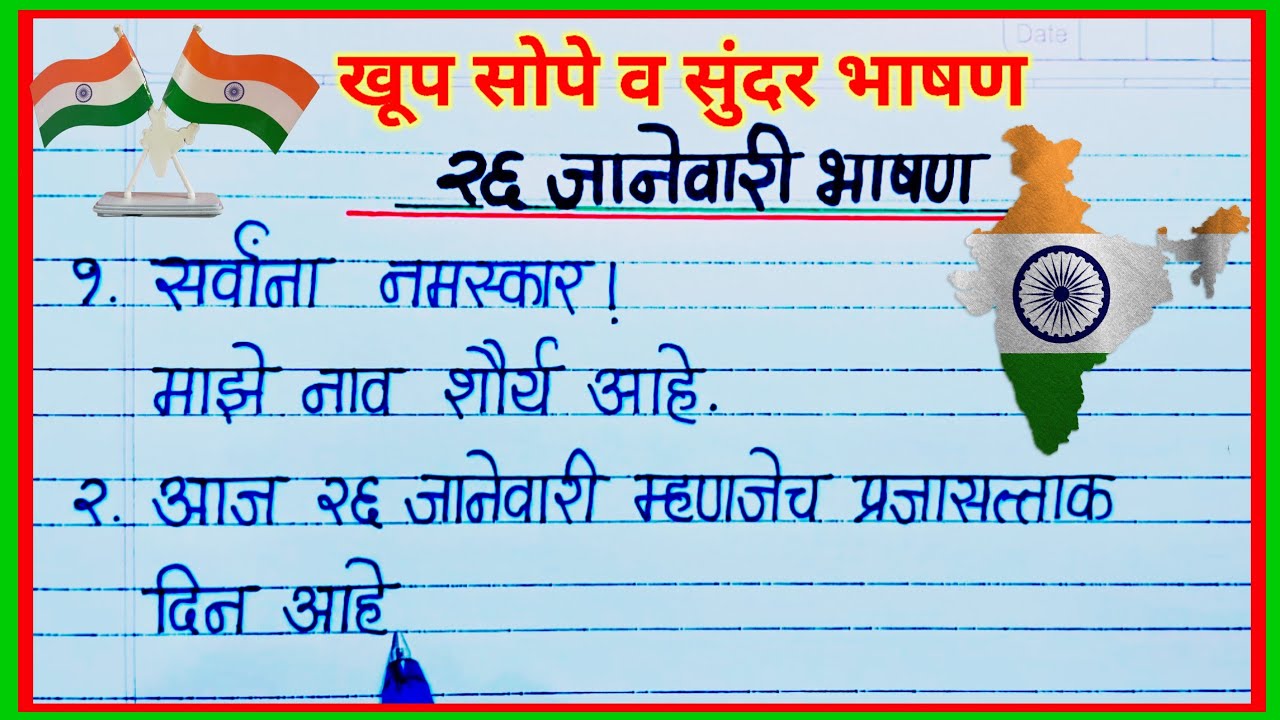 Date
खूप सोपे व सुंदर भाषण
२६ जानेवारी भाषण
१. सर्वांना नमस्कार!
माझे नाव शौर्य आहे.
२. आज २६ जानेवारी म्हणजेच प्रजासत्ताक
दिन आहे